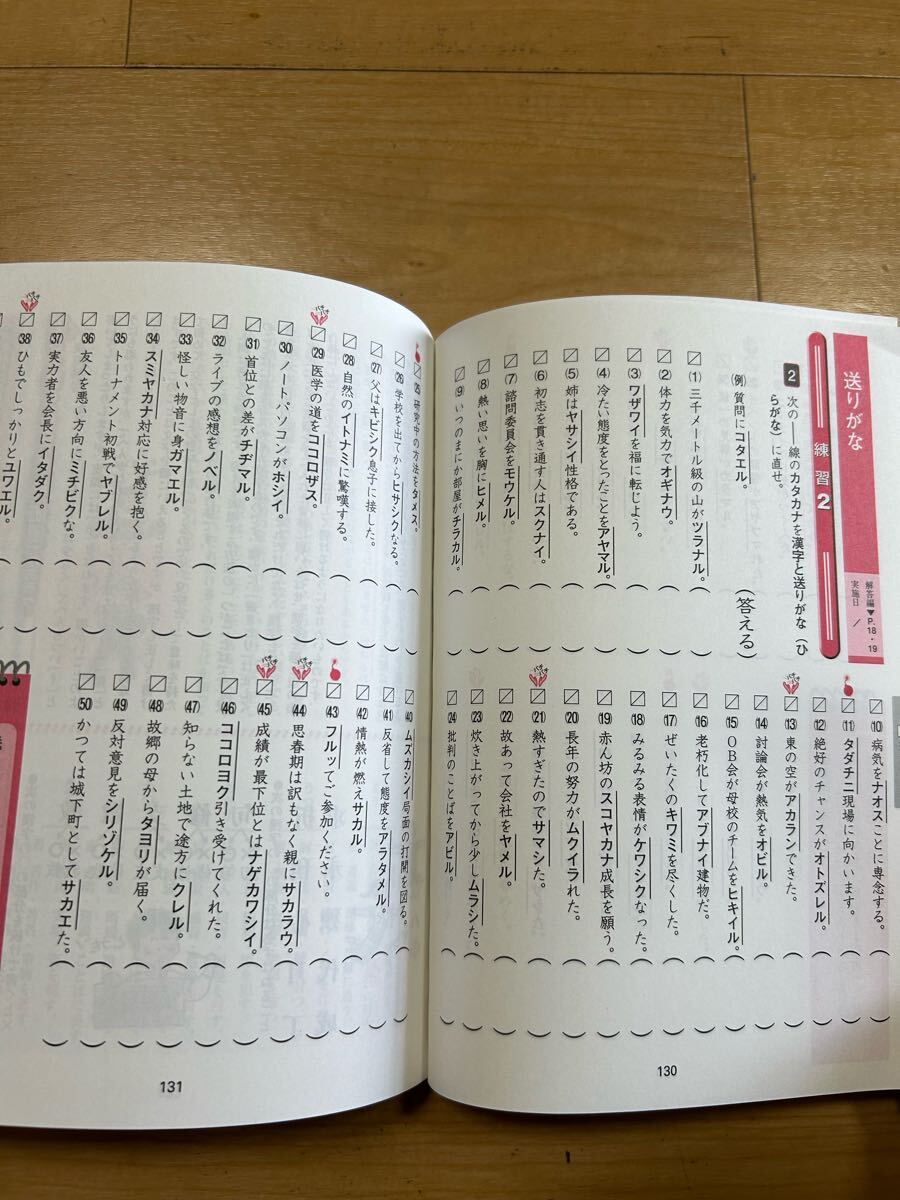 送りがな
解答編▼P.18・19
実施日 /
練習2
2 次の――線のカタカナを漢字と送りがな(ひらがな)に直せ。
(例) 質問にコタエル。(答える)
(1) 三千メートル級の山がツラナル。
(2) 体力を気力でオギナウ。
(3) ワザワイを福に転じよう。
(4) 冷たい態度をとったことをアヤマル。
(5) 姉はヤサシイ性格である。
(6) 初志を貫き通す人はスクナイ。
(7) 諮問委員会をモウケル。
(8) 熱い思いを胸にヒメル。
(9) いつのまにか部屋がチラカル。
(10) 病気をナオスことに専念する。
(11) タダチニ現場に向かいます。
(12) 絶好のチャンスがオトズレル。
(13) 東の空がアカランできた。
(14) 討論会が熱気をオビル。
(15) OB会が母校のチームをヒキイル。
(16) 老朽化してアブナイ建物だ。
(17) ぜいたくのキワミを尽くした。
(18) みるみる表情がケワシクなった。
(19) 赤ん坊のスコヤカナ成長を願う。
(20) 長年の努力がムクイラれた。
(21) 熱すぎたのでサマシた。
(22) 故あって会社をヤメル。
(23) 炊き上がってから少しムラシた。
(24) 批判のことばをアビル。
130
(25) 研究中の方法をタメス。
(26) 学校を出てからヒサシクなる。
(27) 父はキビシク息子に接した。
(28) 自然のイトナミに驚嘆する。
(29) 医学の道をココロザス。
(30) ノートパソコンがホシイ。
(31) 首位との差がチヂマル。
(32) ライブの感想をノベル。
(33) 怪しい物音に身ガマエル。
(34) スミヤカナ対応に好感を抱く。
(35) トーナメント初戦でヤブレル。
(36) 友人を悪い方向にミチビクな。
(37) 実力者を会長にイタダク。
(38) ひもでしっかりとユワエル。
(40) ムズカシイ局面の打開を図る。
(41) 反省して態度をアラタメル。
(42) 情熱が燃えサカル。
(43) フルッてご参加ください。
(44) 思春期は訳もなく親にサカラウ。
(45) 成績が最下位とはナゲカワシイ。
(46) ココロヨク引き受けてくれた。
(47) 知らない土地で途方にクレル。
(48) 故郷の母からタヨリが届く。
(49) 反対意見をシリゾケル。
(50) かつては城下町としてサカエた。
131